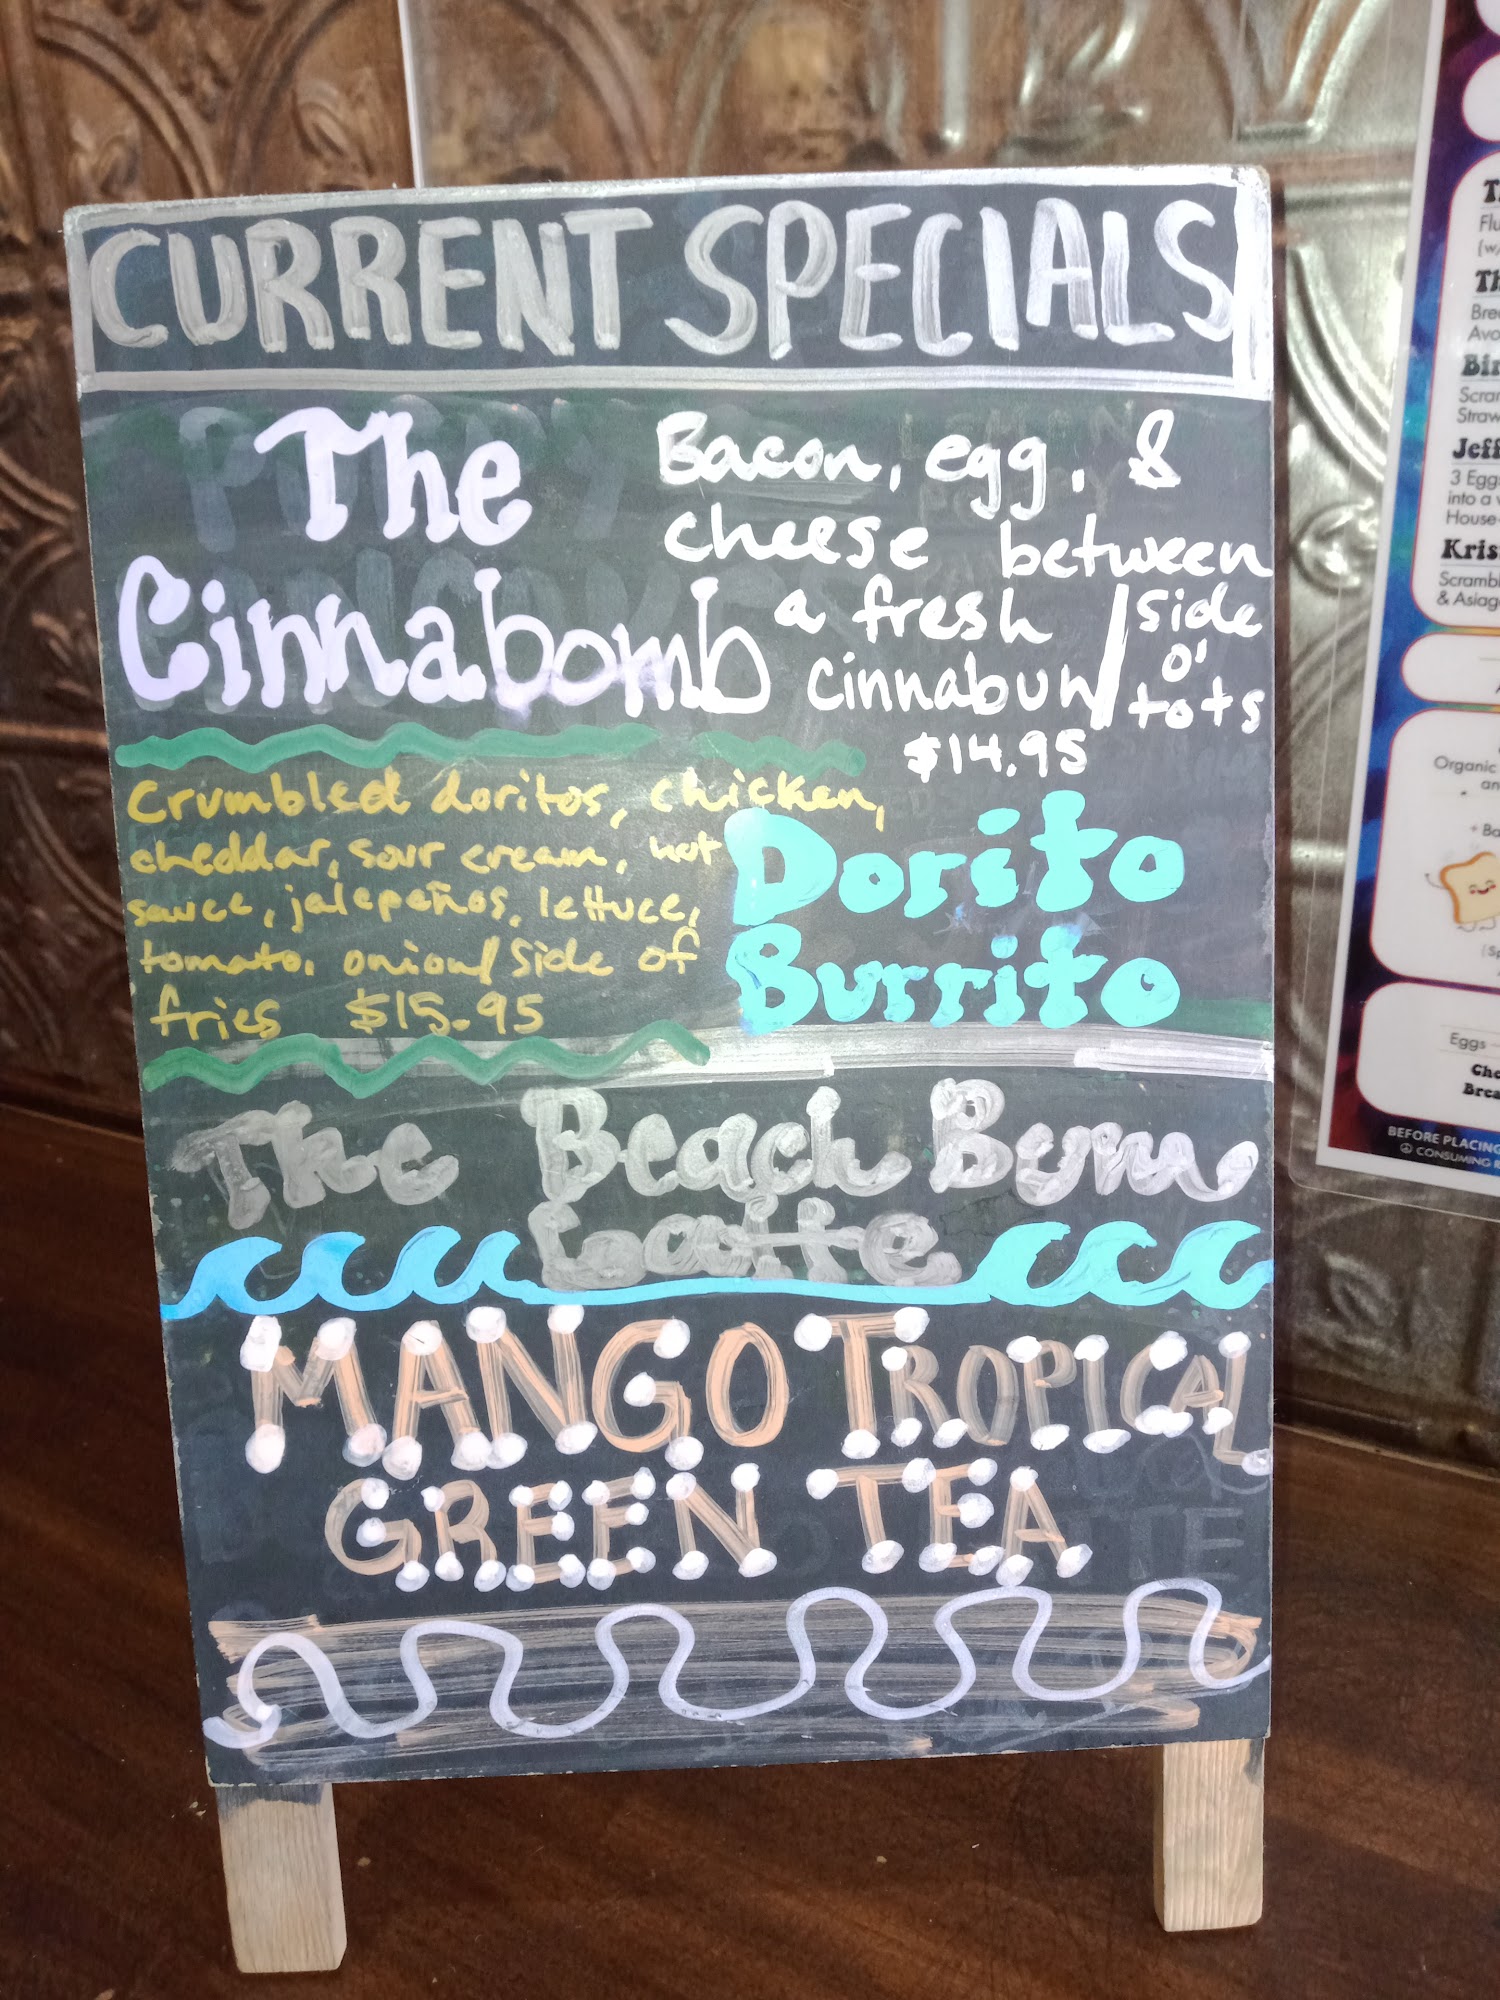 CURRENT SPECIALS
The
Cinnabomb
Bacon, egg, &
cheese between
a fresh
cinnabun/
side
o'
tots
$14.95
Crumbled doritos, chicken,
cheddar, sour cream, hot
sauce, jalepeños, lettuce,
tomato, onion/side of
fries $15.95
Dorito
Burrito
The Beach Bum
Latte
MANGO TROPICAL
GREEN TEA
Jeff
3 Eggs
into a
House
Kris
& Asiag
Organic
Eggs
BEFORE PLACING
CONSUMING